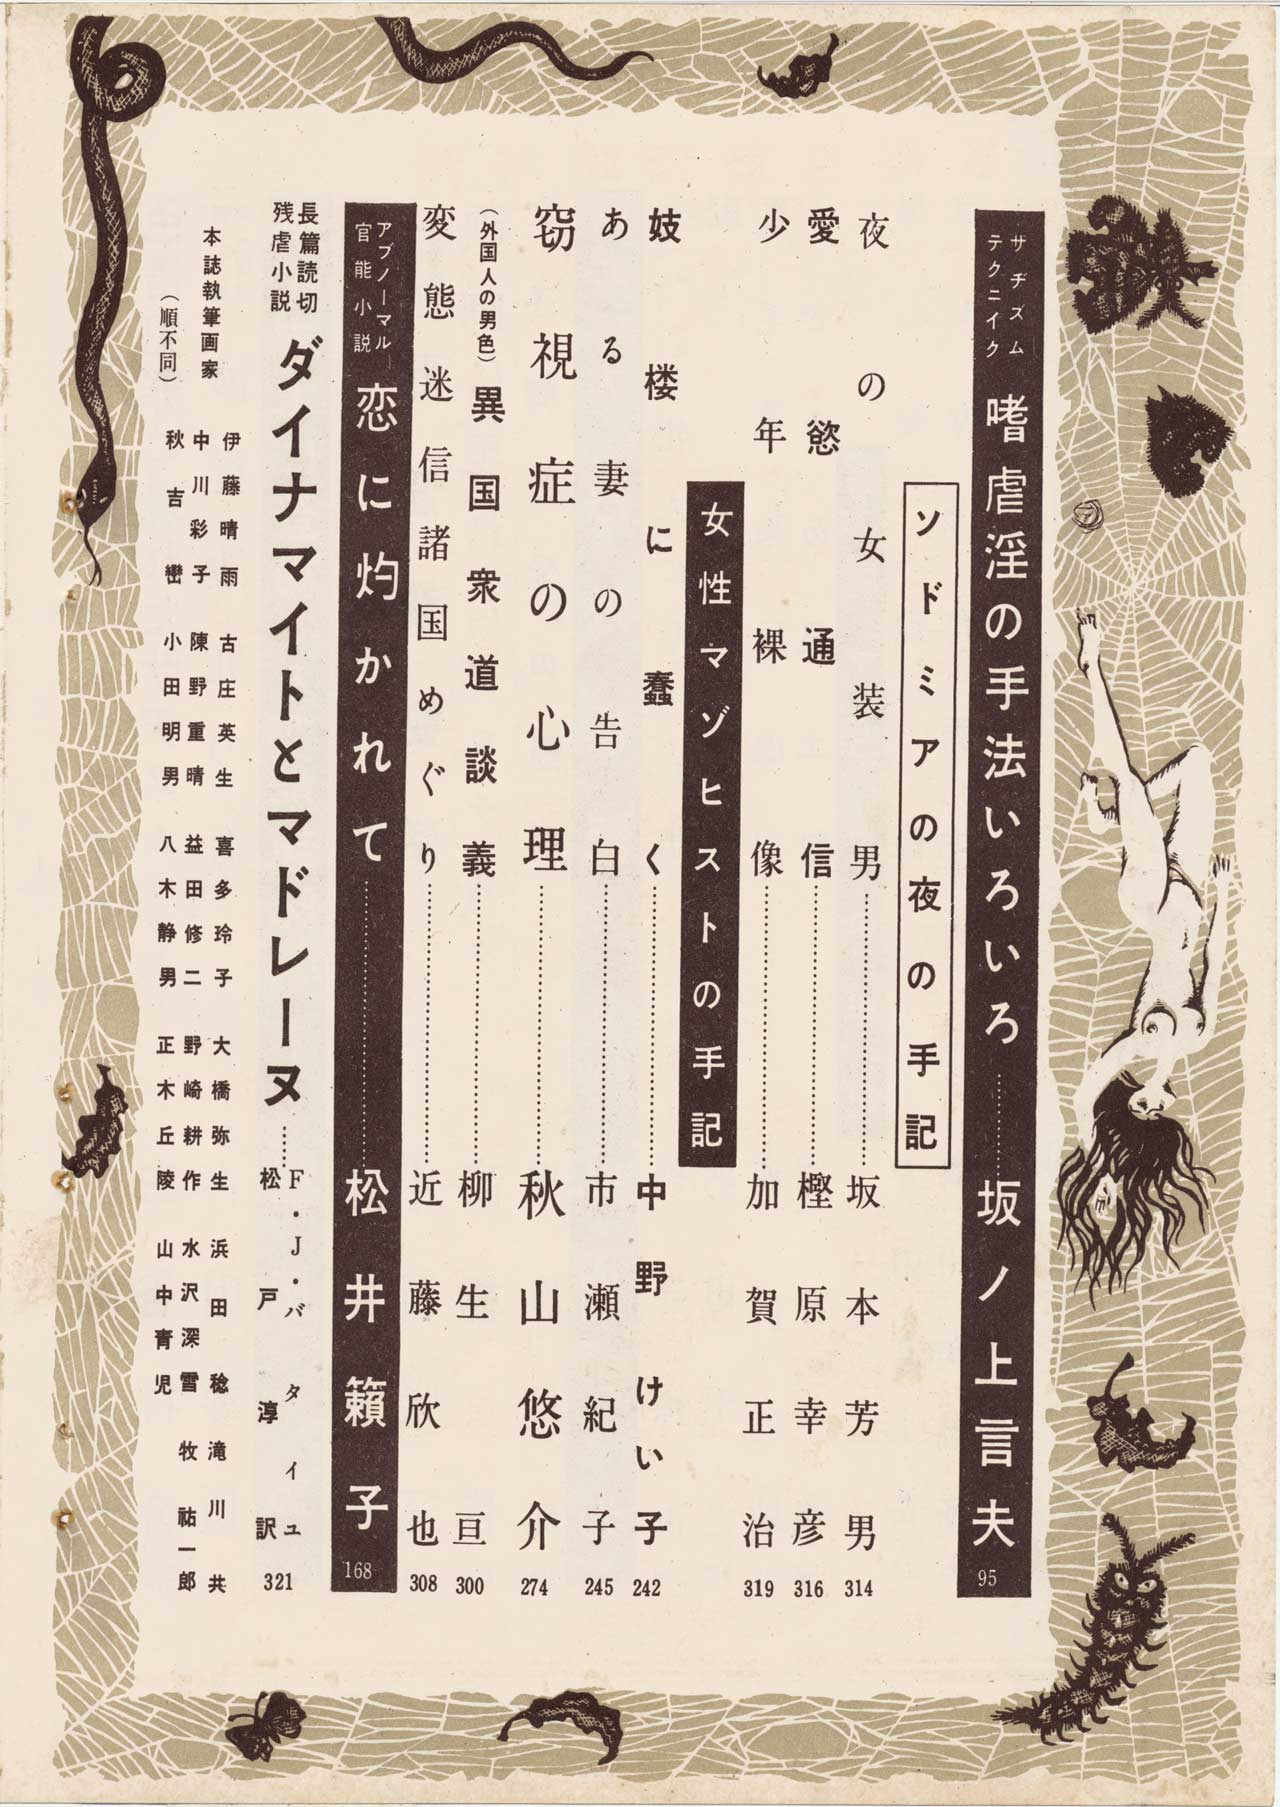 サヂズム
テクニイク
嗜虐淫の手法いろいろ…………坂ノ上言夫 95
ソドミアの夜の手記
夜の女装男…………坂本芳男 314
愛慾通信…………樫原幸彦 316
少年裸像…………加賀正治 319
女性マゾヒストの手記
妓楼に蠢く…………中野けい子 242
ある妻の告白…………市瀬紀子 245
窃視症の心理…………秋山悠介 274
(外国人の男色)異国衆道談義…………柳生亘 300
変態迷信諸国めぐり…………近藤欣也 308
アブノーマル
官能小説
恋に灼かれて…………松井籟子 168
長篇読切
残虐小説
ダイナマイトとマドレーヌ……
F・J・バタイユ
松戸淳訳 321
本誌執筆画家
(順不同)
伊藤晴雨
中川彩子
秋吉巒
古庄英生
陳野重晴
小田明男
喜多玲子
益田修二
八木静男
大橋弥生
野崎耕作
正木丘陵
浜田稔
水沢深雪
山中青児
滝川共
牧祐一郎